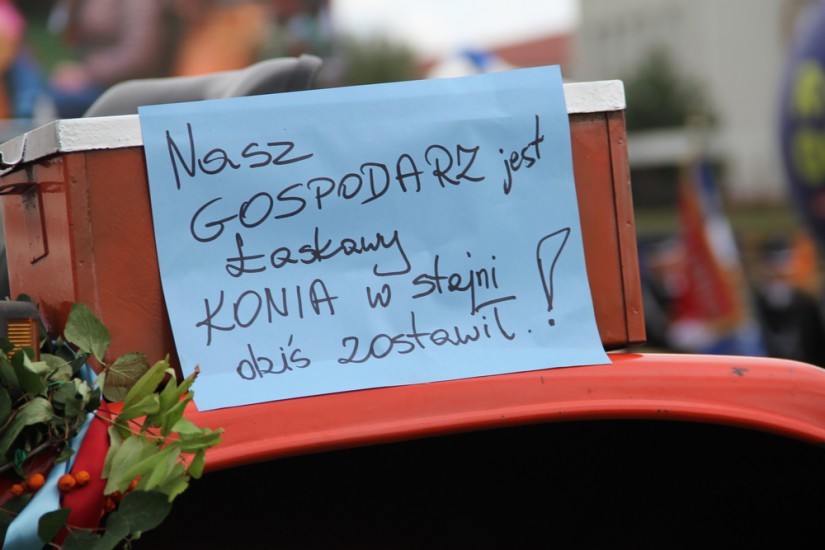 Nasz
GOSPODARZ jest
Łaskawy
KONIA w stajni
dziś zostawił.!